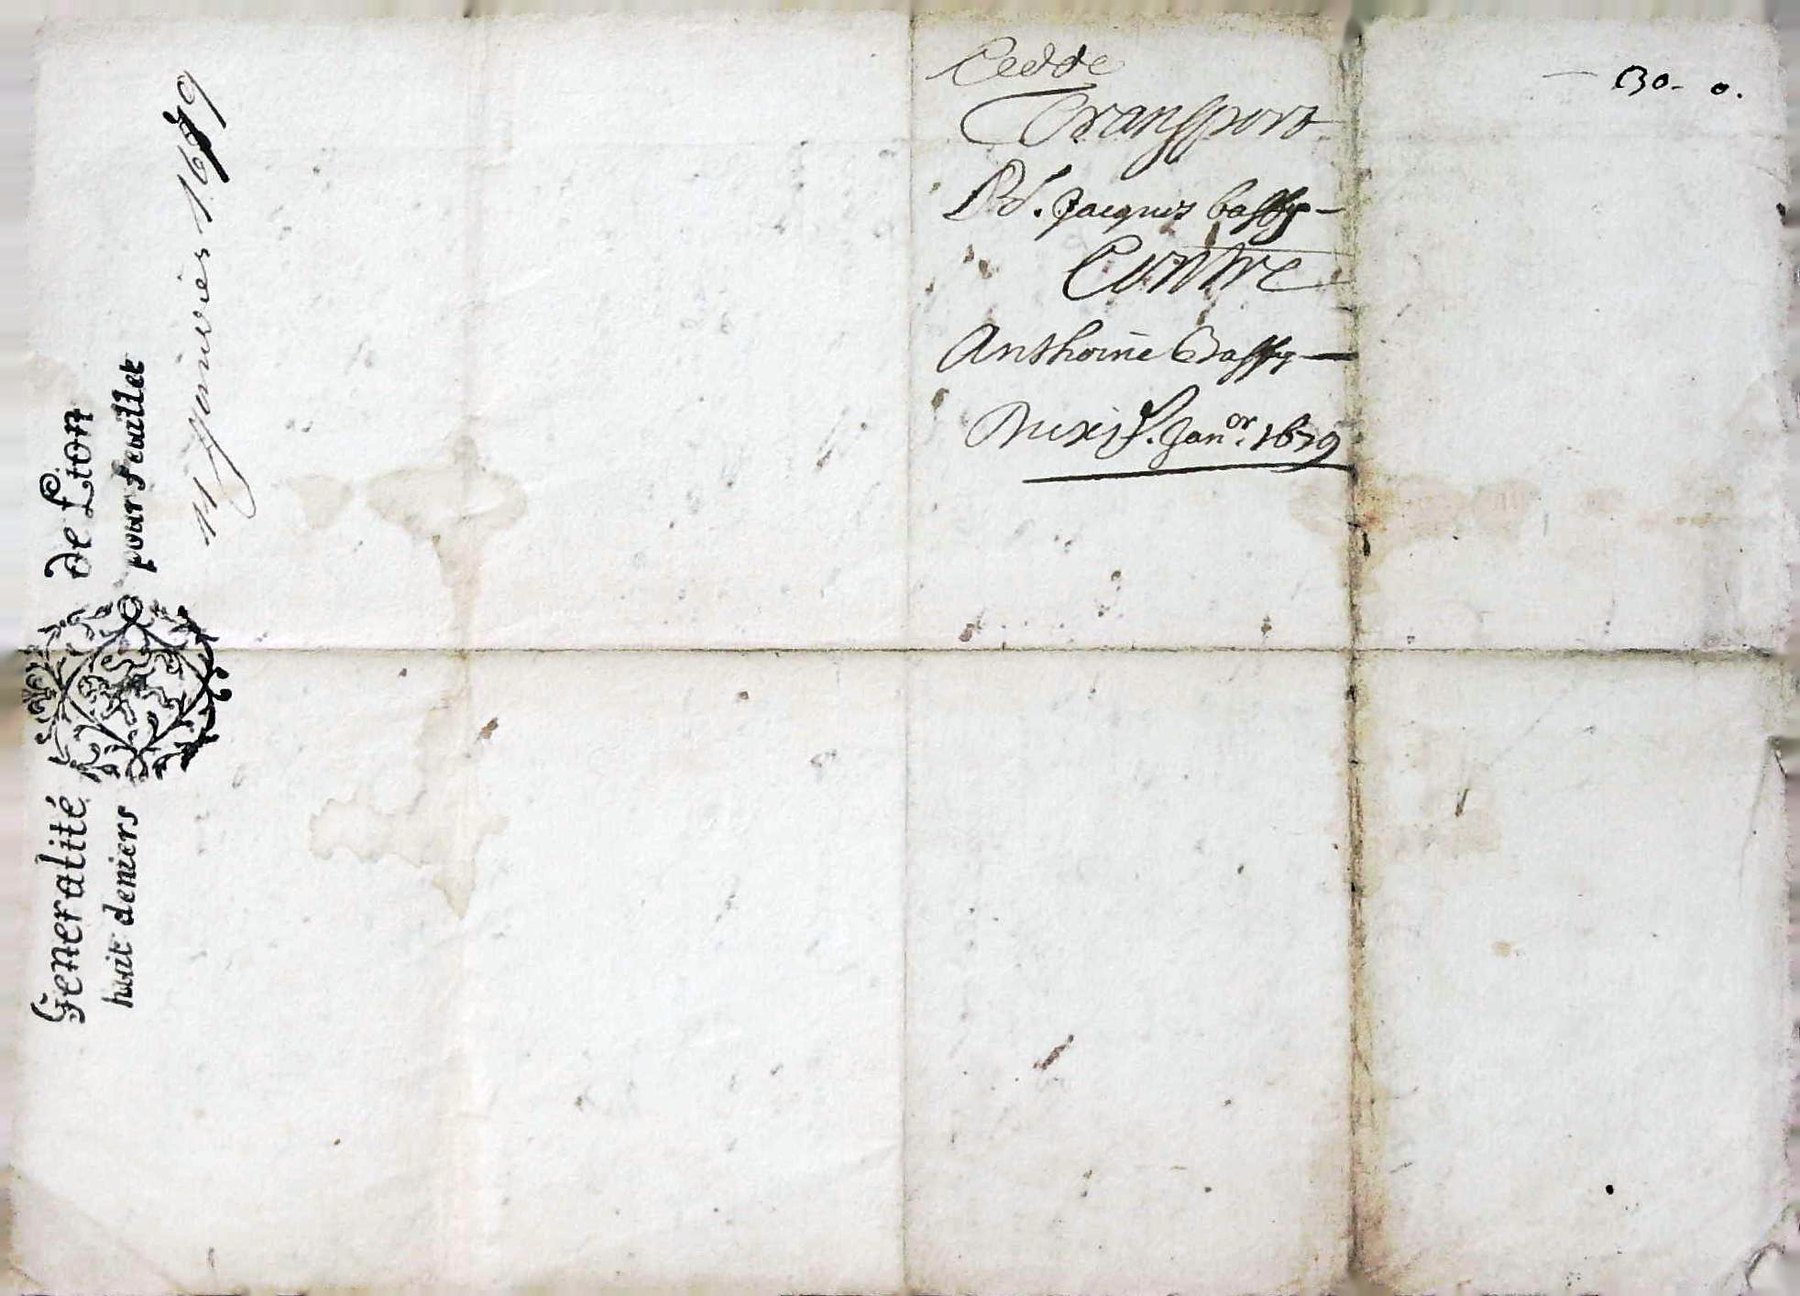 Generalité de Lion
huit deniers pour feuillet
11 Janvier 1679
Cedde
Transport
Pd. Jacques bassy
Contre
Anthoine Bassy
Du xj Janor. 1679
130- 0.